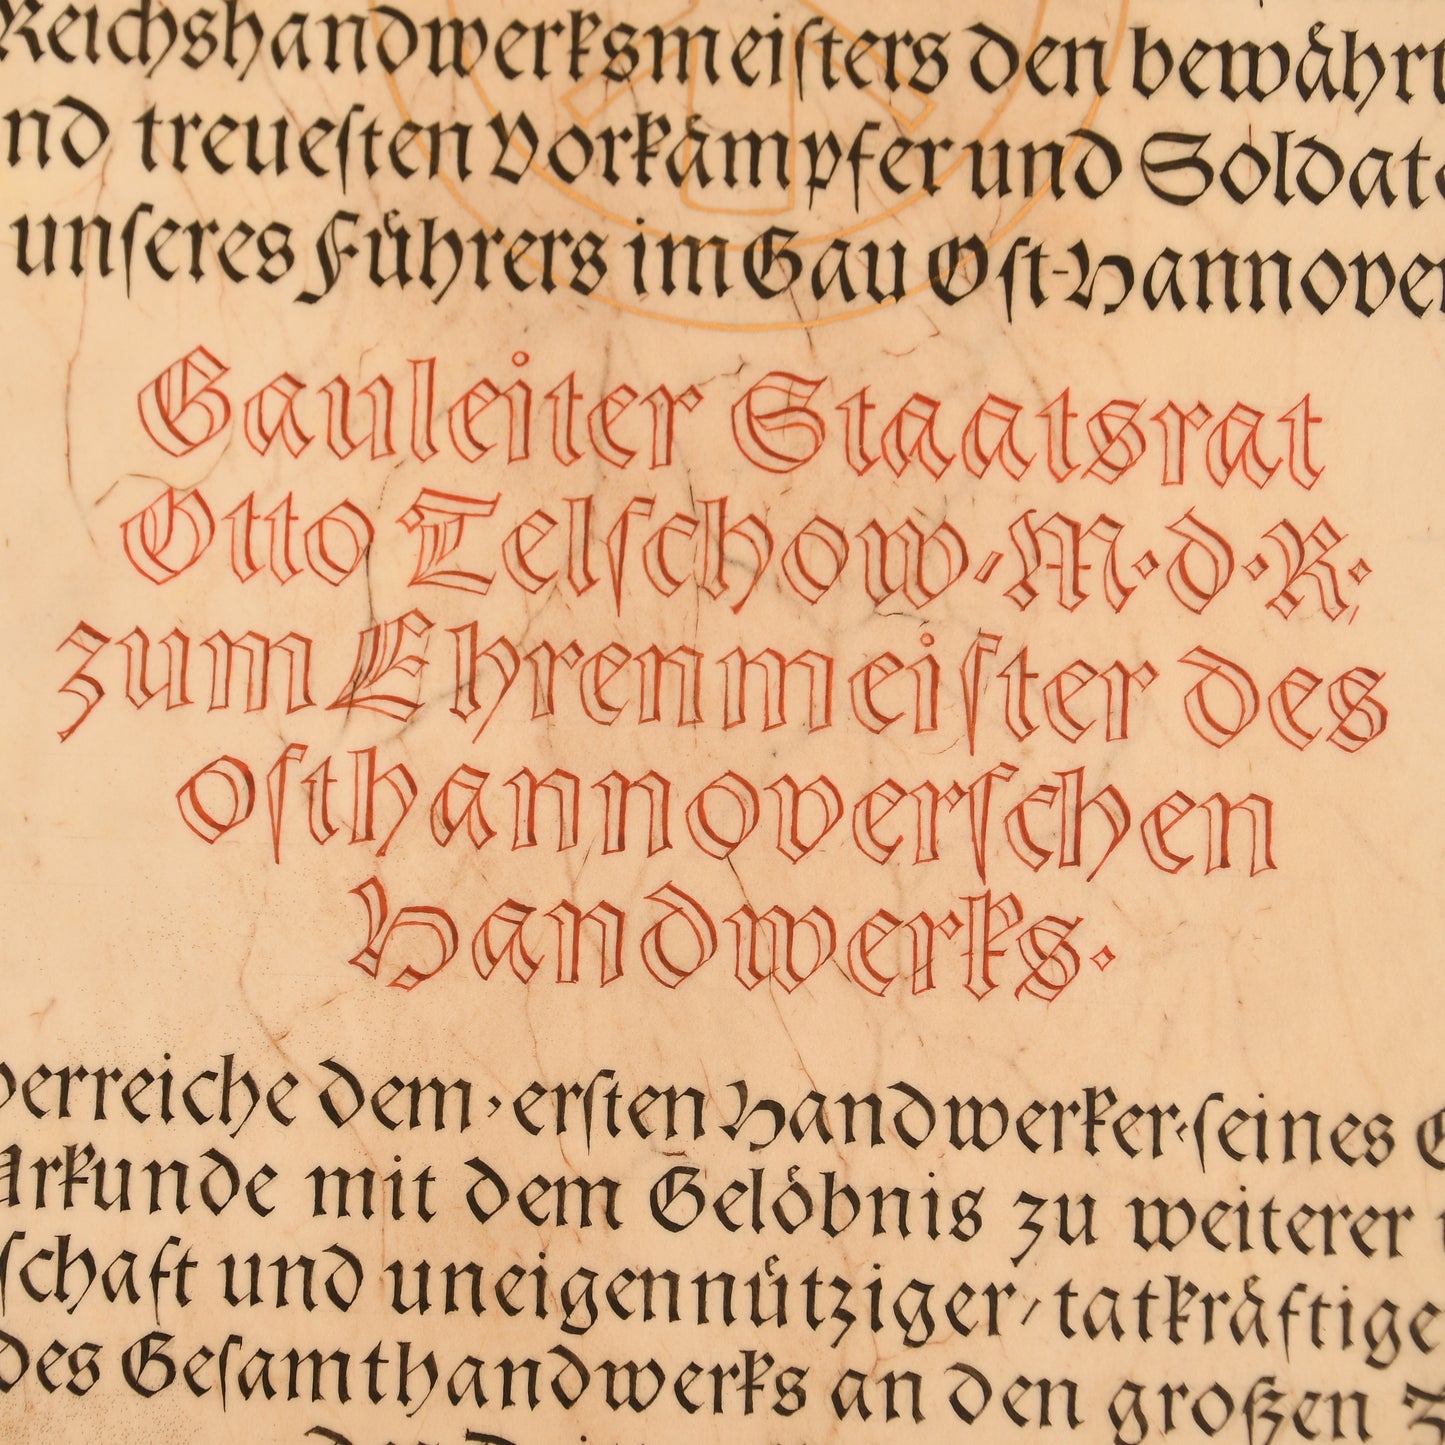 Reichshandwerksmeiſters den bewährt
nd treueſten Vorkämpfer und Soldate
unſeres Führers im Gau Oſt-Hannover
Gauleiter Staatsrat
Otto Telſchow, M·d·R·
zum Ehrenmeiſter des
oſthannoverſchen
Handwerks·
berreiche dem ‚erſten Handwerker‘ ſeines G
Urkunde mit dem Gelöbnis zu weiterer
ſchaft und uneigennütziger, tatkräftige
des Geſamthandwerks an den großen Z